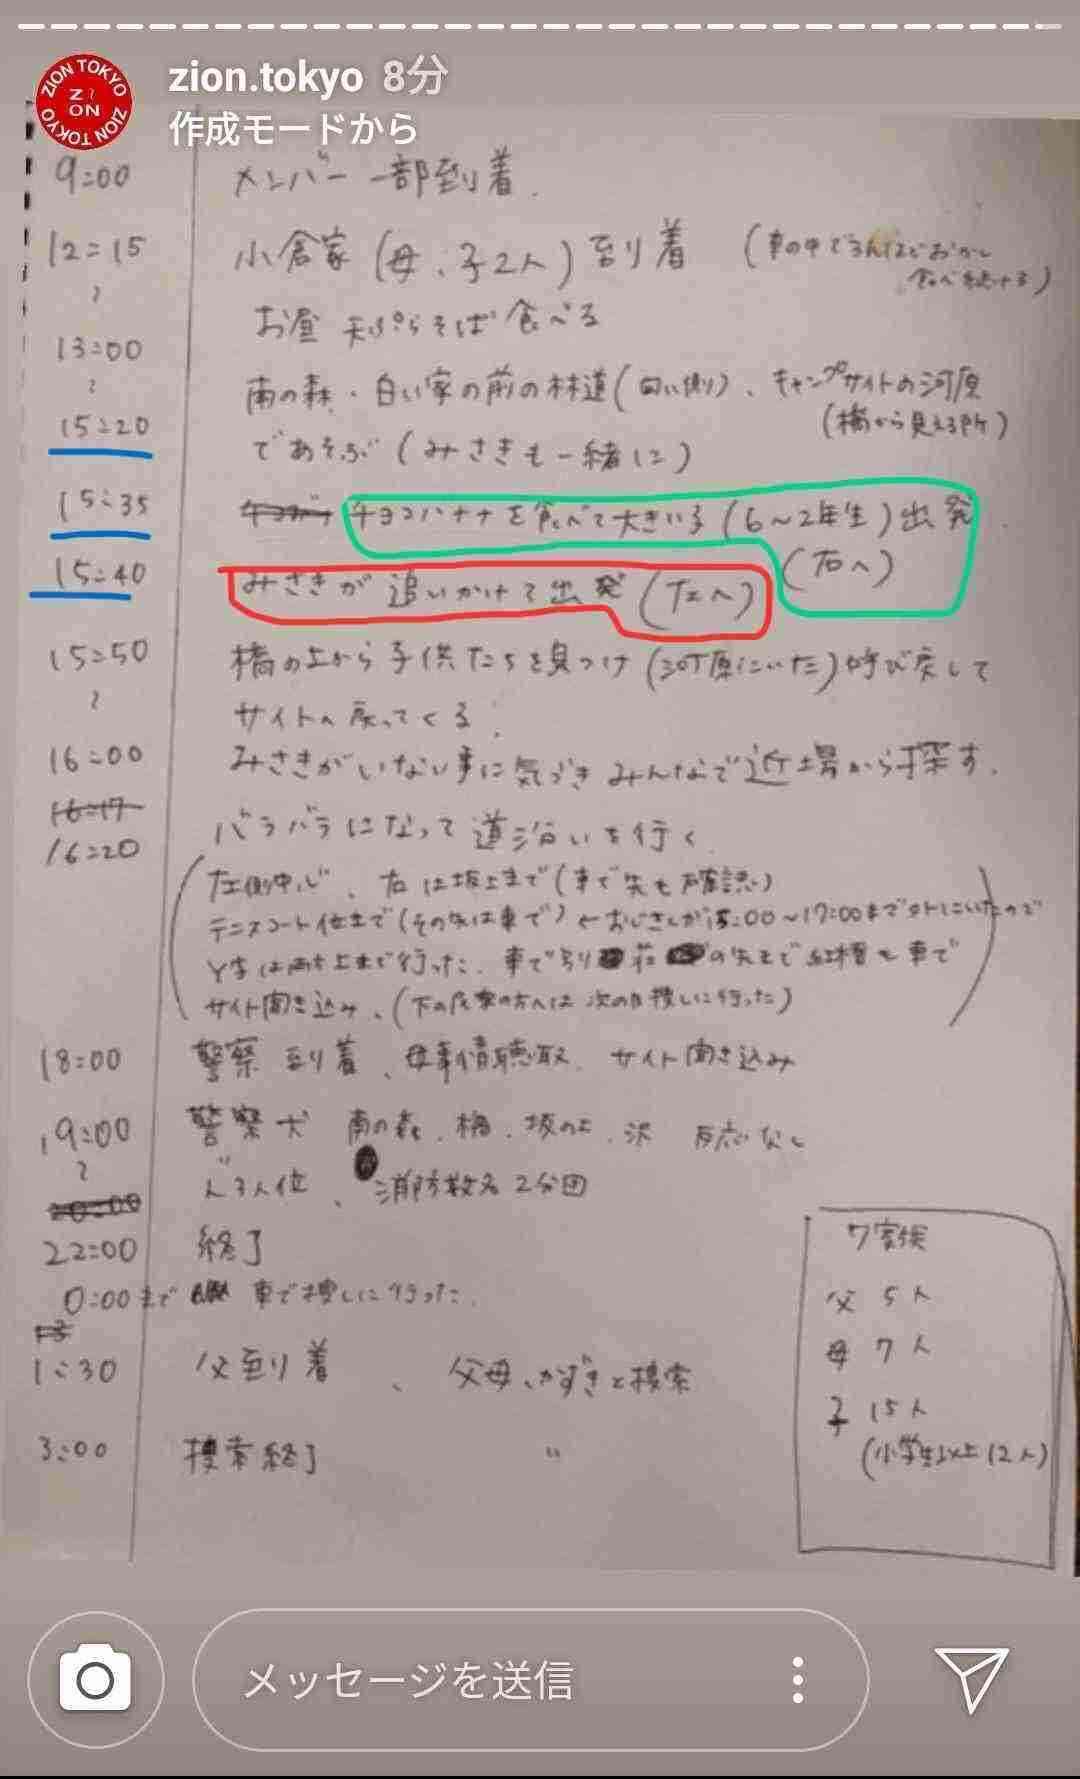 zion.tokyo 8分
作成モードから
ZION TOKYO ZION TOKYO
Z~ON
9:00 メンバー一部到着.
12:15 小倉家(母、子2人)到着 (車の中でるんはどおかし
食べ続ける)
~ お昼 天ぷらそば食べる
13:00
~ 南の森・白い家の前の林道(白い側)、キャンプサイトの河原
(橋から見える所)
15:20 であそぶ(みさきも一緒に)
15:35 チョコバナナを食べて大きい子(6~2年生)出発.
(右へ)
15:40 みさきが追いかけて出発(左へ)
15:50 橋の上から子供たちを見つけ(河原にいた)呼び戻して
~ サイトへ戻ってくる.
16:00 みさきがいない事に気づきみんなで近場から探す.
16:17
16:20 バラバラになって道沿いを行く.
左側中心、右は坂上まで(車で先も確認)
テニスコート位まで(その先は車で)←おじさんが :00~17:00まで外にいたので
Y字は両方上まで行った. 車で別荘の先まで 車で
サイト聞き込み、(下の民家の方へは次の日捜しに行った)
18:00 警察到着、母事情聴取. サイト聞き込み
19:00 警察犬 南の森.橋.坂の上.沢 反応なし
~ 〃 3人位、消防数名2分団
20:00
22:00 終了
0:00まで 車で捜しに行った.
1:30 父到着、父母、かずきと捜索
3:00 捜索終了 〃
7家族
父 5人
母 7人
子 15人
(小学生以上12人)
メッセージを送信